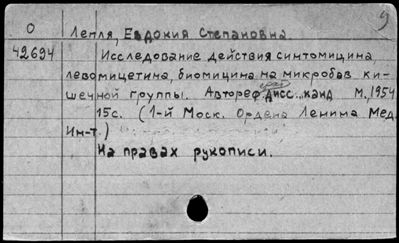 9
О Лепля, Евдокия Степановна
42694 Исследование действия синтомицина,
левомицетина, биомицина на микробов ки-
шечной группы. Автореф. дисс... канд М., 1954
15с. (1-й Моск. Ордена Ленина Мед.
Ин-т.)
На правах рукописи.